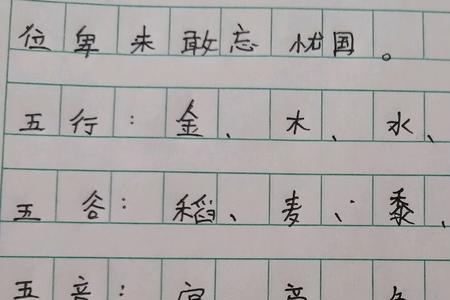 位卑未敢忘忧国。
五行：金、木、水、
五谷：稻、麦、黍、
五音：宫、商、角